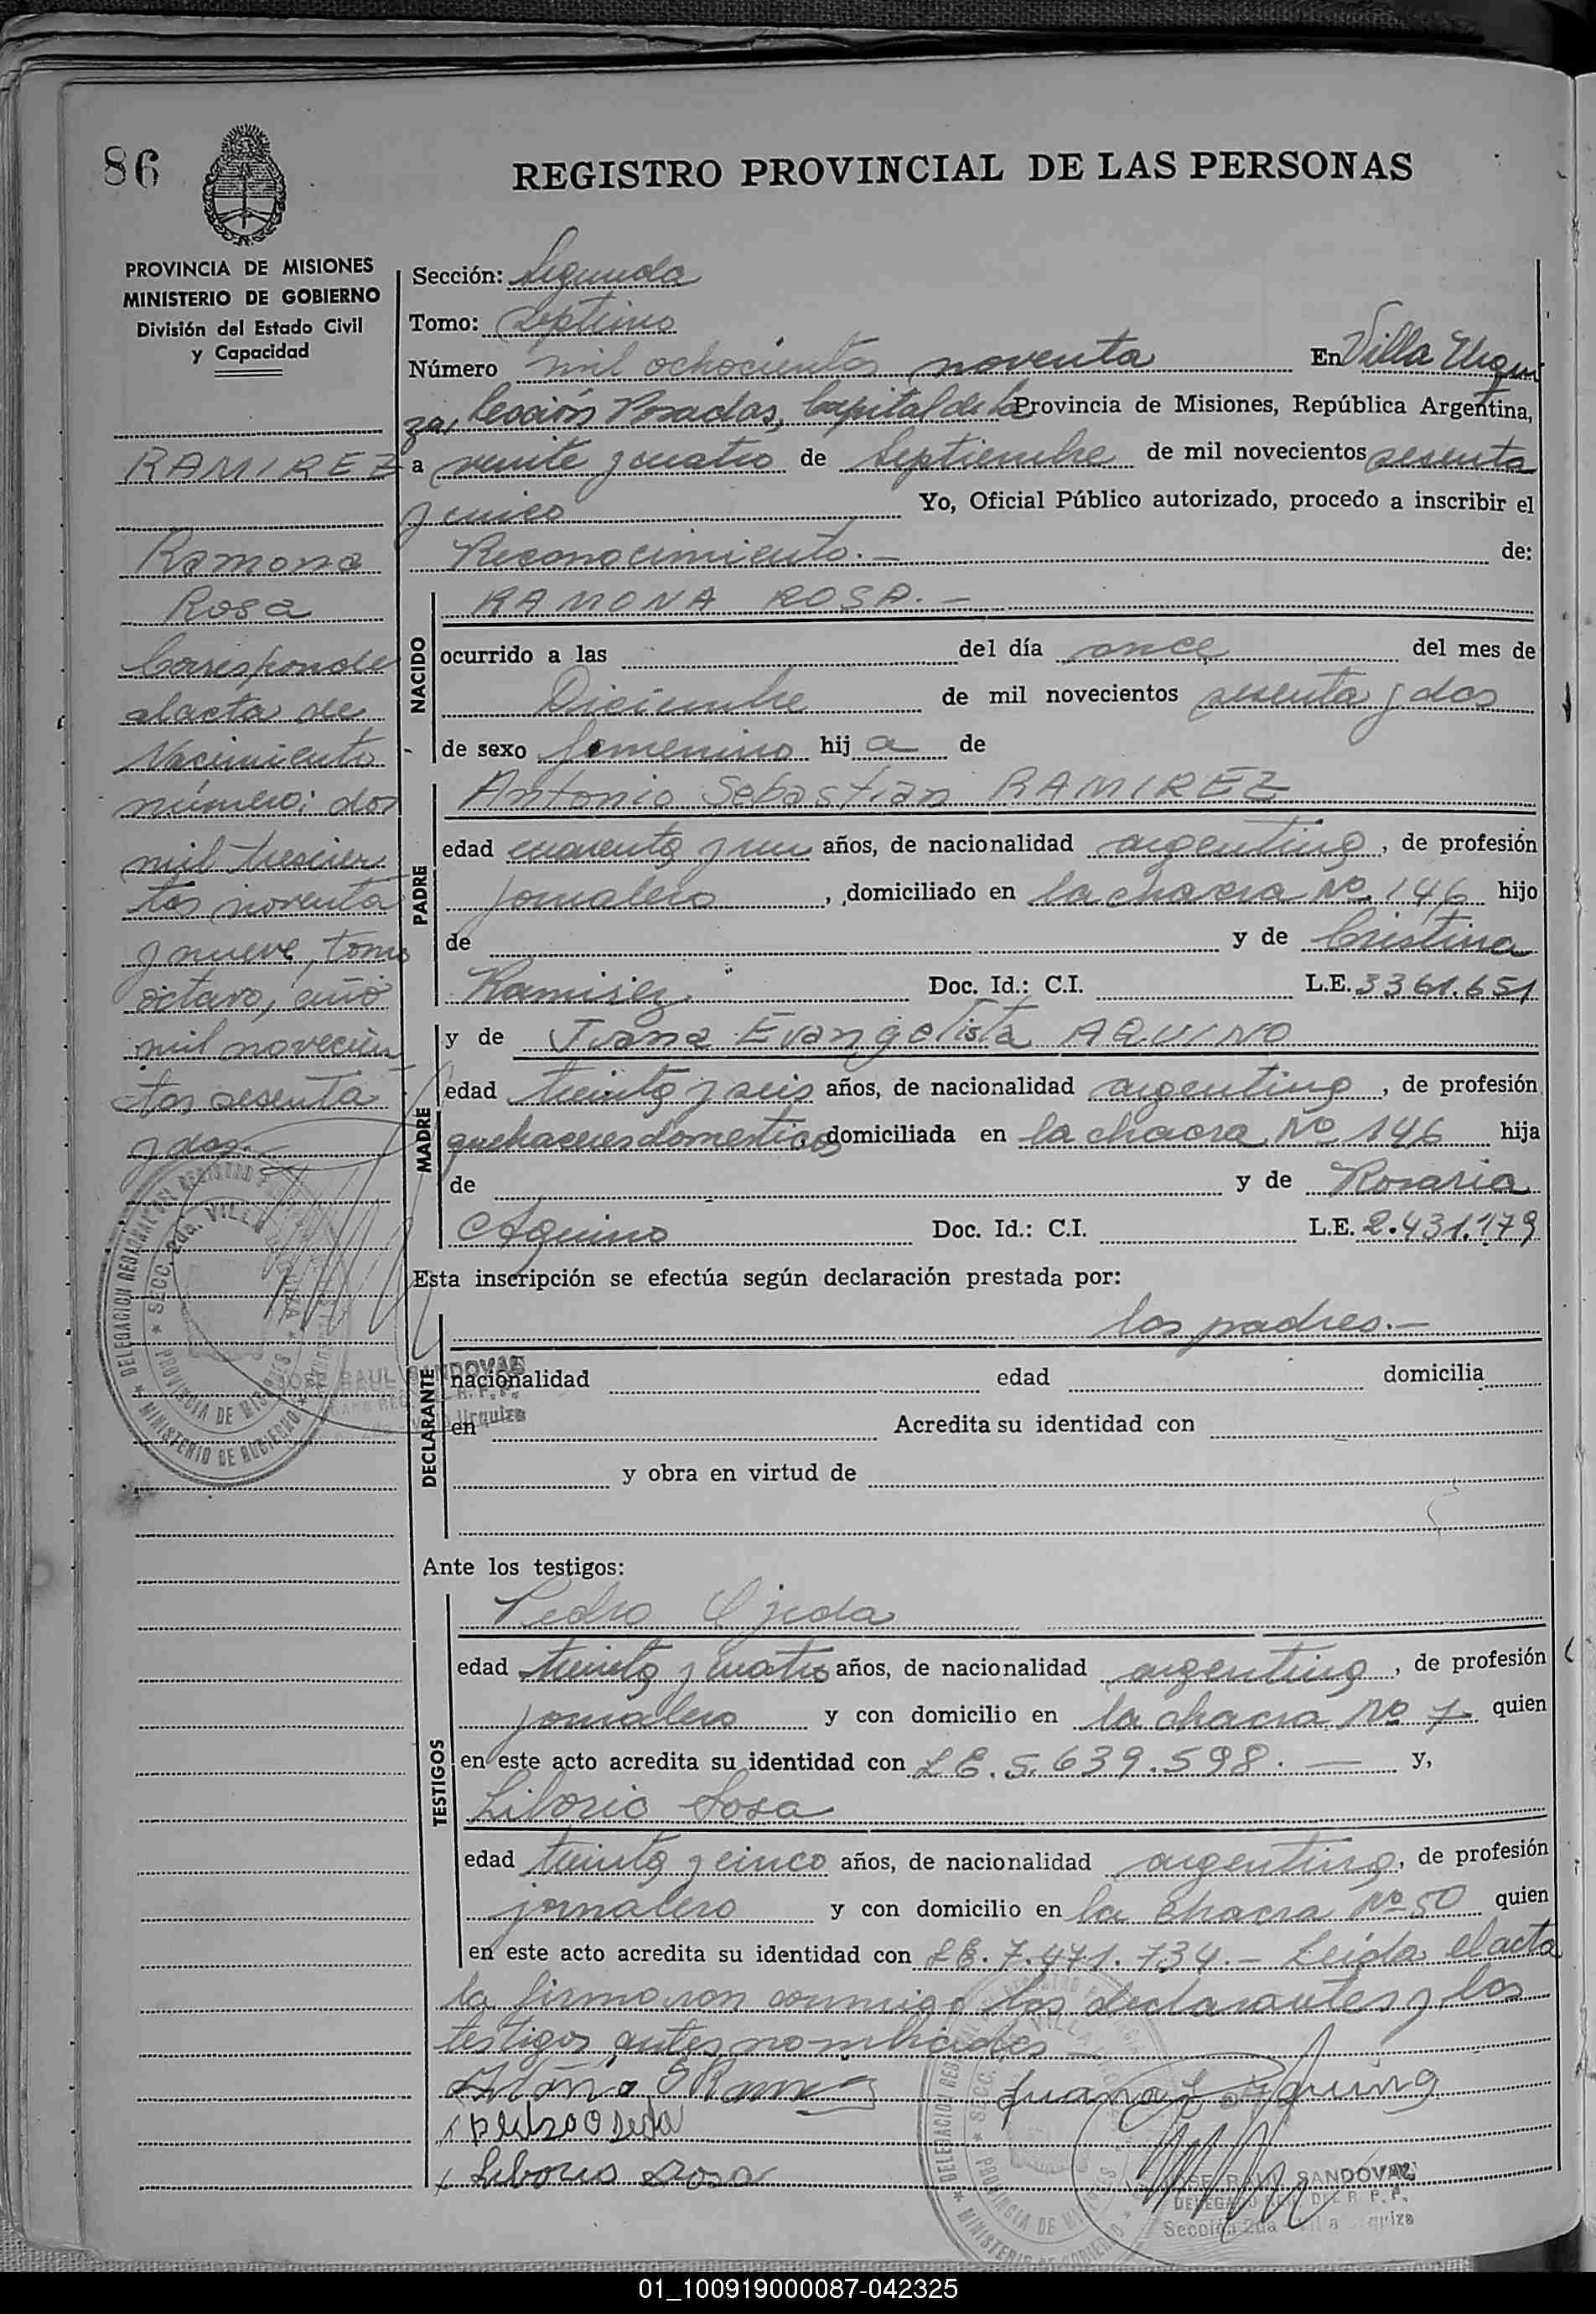 86
REGISTRO PROVINCIAL DE LAS PERSONAS
PROVINCIA DE MISIONES
MINISTERIO DE GOBIERNO
División del Estado Civil
y Capacidad
RAMIREZ
Ramona
Rosa
Corresponde
al acta de
Nacimiento
número: dos
mil trescien
tos noventa
y nueve, tomo
octavo, año
mil novecien
tos sesenta
y dos.
Sección: Segunda
Tomo: Septimo
Número mil ochocientos noventa En Villa Urqui
za, Sección Posadas, Capital de la Provincia de Misiones, República Argentina,
a veinte y cuatro de Septiembre de mil novecientos sesenta
y cinco Yo, Oficial Público autorizado, procedo a inscribir el
Reconocimiento.- de:
NACIDO
RAMONA ROSA.-
ocurrido a las del día once del mes de
Diciembre de mil novecientos sesenta y dos
de sexo femenino hija de
PADRE
Antonio Sebastian RAMIREZ
edad cuarenta y un años, de nacionalidad argentino, de profesión
jornalero, domiciliado en la chacra Nº 146 hijo
de y de Cristina
Ramirez Doc. Id.: C.I. L.E. 3361.651
MADRE
y de Juana Evangelista AQUINO
edad treinta y seis años, de nacionalidad argentina, de profesión
quehaceres domesticos, domiciliada en la chacra Nº 146 hija
de y de Rosaria
Aquino Doc. Id.: C.I. L.E. 2.431.179
Esta inscripción se efectúa según declaración prestada por:
DECLARANTE
los padres.-
nacionalidad edad domicilia
en Acredita su identidad con
y obra en virtud de
Ante los testigos:
TESTIGOS
Pedro Ojeda
edad treinta y cuatro años, de nacionalidad argentino, de profesión
jornalero y con domicilio en la chacra Nº 7 quien
en este acto acredita su identidad con L.E. 5.639.598.- y,
Liborio Sosa
edad treinta y cinco años, de nacionalidad argentino, de profesión
jornalero y con domicilio en la chacra Nº 50 quien
en este acto acredita su identidad con L.E. 7.471.734.- Leída el acta
la firmaron conmigo los declarantes y los
testigos antes nombrados
Juana E. Aquino
x pedro Ojeda
x Liborio Sosa
JOSE RAUL SANDOVAL
DELEGADO REG. DEL R. P. P.
Sección 2da Villa Urquiza
DELEGACION REGIONAL DEL REGISTRO
SECC. 2da. VILLA URQUIZA
PROVINCIA DE MISIONES
MINISTERIO DE GOBIERNO
01_100919000087-042325